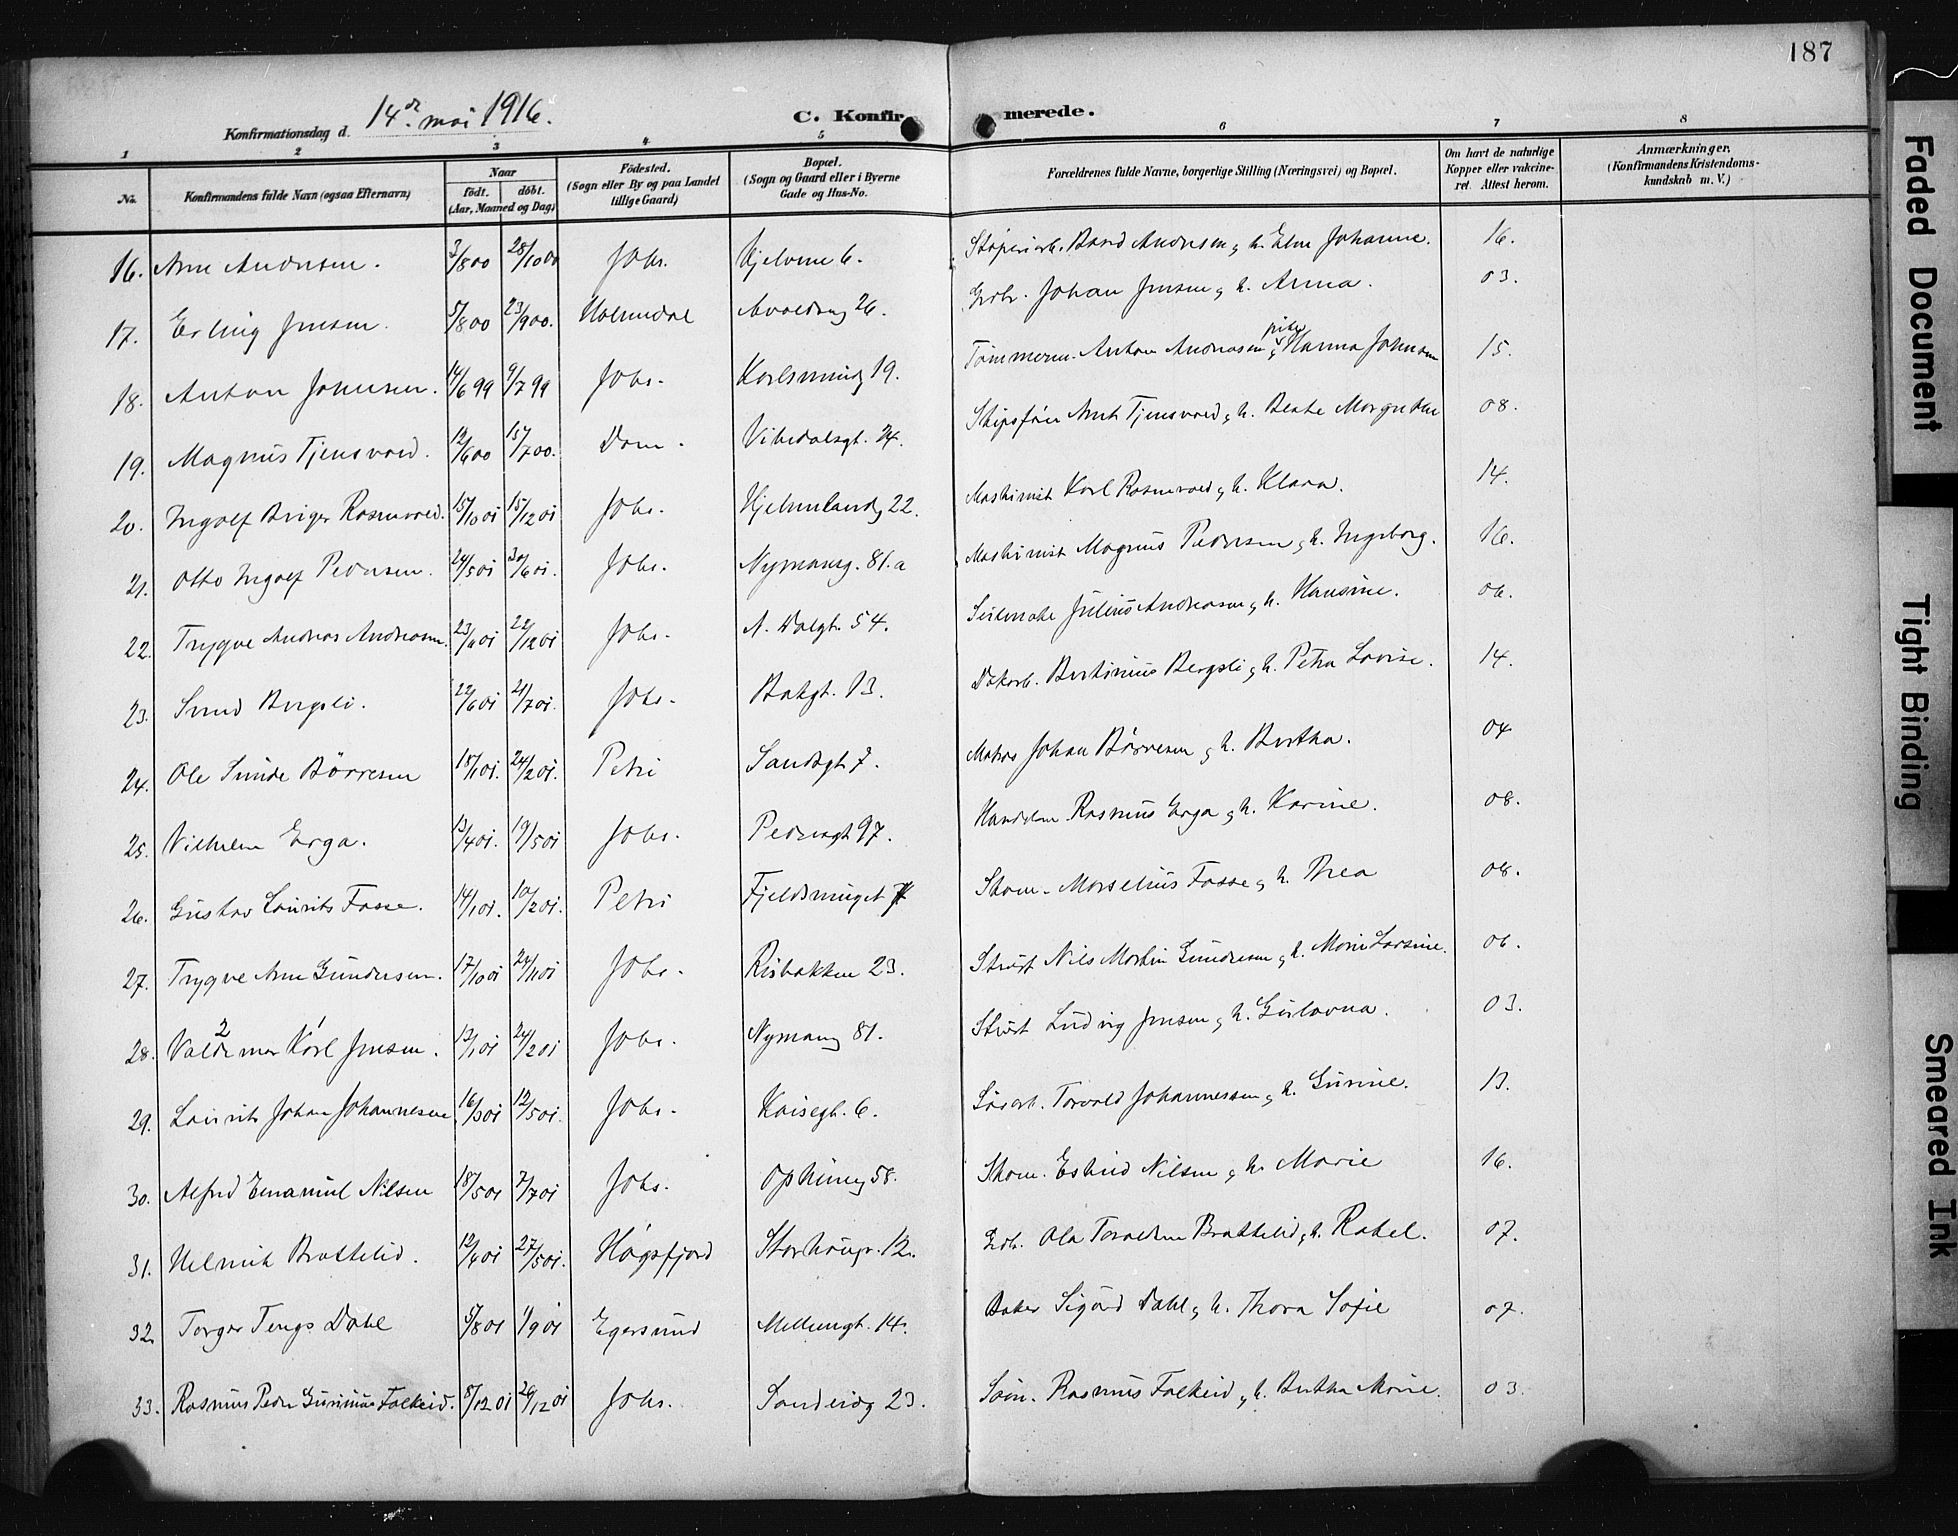 187
Konfirmationsdag d. 14de mai 1916.
C. Konfirmerede.
1 2 3 4 5 6 7 8
No. Konfirmandens fulde Navn (ogsaa Efternavn) Naar födt. döbt. (Aar, Maaned og Dag) Födested. (Sogn eller By og paa Landet tillige Gaard) Bopæl. (Sogn og Gaard eller i Byerne Gade og Hus-No. Forældrenes fulde Navne, borgerlige Stilling (Næringsvei) og Bopæl. Om havt de naturlige Kopper eller vakcineret. Attest herom. Anmærkninger. (Konfirmandens Kristendomskundskab m. V.)
16. Arne Andersen. 3/8 00 28/10 00 Johs. Hjelmne 6. Støperiarb. Bård Andersen og h. Eline Johanne. 16.
17. Erling Jensen. 5/8 00 23/9 00. Holmedal Avaldsng 26. Grdbr. Johan Jensen og h. Anna. 03.
18. Anton Johnsen. 14/6 99 9/7 99 Johs. Karlsmindg 19. Tømmerm. Anton Andreasen og pike Hanna Johnsen 15.
19. Magnus Tjensvold. 12/6 00 15/7 00. Dom. Vibedalsgt. 24. Skipsfører Arnt Tjensvold og h. Beate Margrethe 08.
20. Ingolf Birger Rosnevold. 15/10 01 15/12 01 Johs. Hjelmelandg 22. Maskinist Karl Rosnevold og h. Klara. 14.
21. Otto Ingolf Pedersen. 24/5 01 30/6 01. Johs. Nymansg. 81.a Maskinist Magnus Pedersen og h. Ingeborg. 16.
22. Trygve Andreas Andreasen. 23/11 01 22/12 01 Johs. N. Dalgt. 54. Seilmaker Julius Andreasen og h. Hansine. 06.
23. Svend Bergsli. 22/6 01 21/7 01. Johs. Bakgt. 13. Bertinius Bergsli og h. Petra Lovise. 14.
24. Ole Sunde Børresen 18/1 01. 24/2 01. Petri Sandsgt 7. Matros Johan Børresen og h. Bertha. 04
25. Vilhelm Erga. 13/4 01. 19/5 01 Johs. Pedersgt 97. Handelsm. Rasmus Erga og h. Karine. 08.
26. Gustav Laurits Fosse. 14/1 01. 10/2 01. Petri Fjeldsmuget 7 Skom. Marselius Fosse og h. Thea 08.
27. Trygve Arne Gundersen. 17/10 01 24/11 01 Johs. Risbakken 23. Stuert Nils Martin Gundersen og h. Marie Larsine. 06.
28. Valdemar 2 Karl 1 Jensen. 13/1 01 24/2 01 Johs. Nymansg 81. Stuert Ludvig Jensen og h. Gustavna. 03.
29. Laurits Johan Johannesen. 16/3 01 12/5 01. Johs. Kaisegt. 6. Torvald Johannessen og h. Gurine. 13.
30. Alfred Emanuel Nilsen 18/5 01 7/7 01 Johs. Opheimsg 58. Skom. Eskild Nilsen og h. Marie 16.
31. Helmik Brattelid. 12/4 01 27/5 01. Høgsfjord Storhaugv. 12. Grdb. Ola Toralden Brattelid og h. Rakel. 07.
32. Torger Tengs Dahl 5/8 01 1/9 01 Egersund Mellumgt. 14. Baker Sigurd Dahl og h. Thora Sofie 07.
33. Rasmus Peder Gurinius Falkeid. 8/12 01 26/12 01 Johs. Sandeidg 23. Søm. Rasmus Falkeid og h. Bertha Marie. 03.
Faded Document
Tight Binding
Smeared Ink